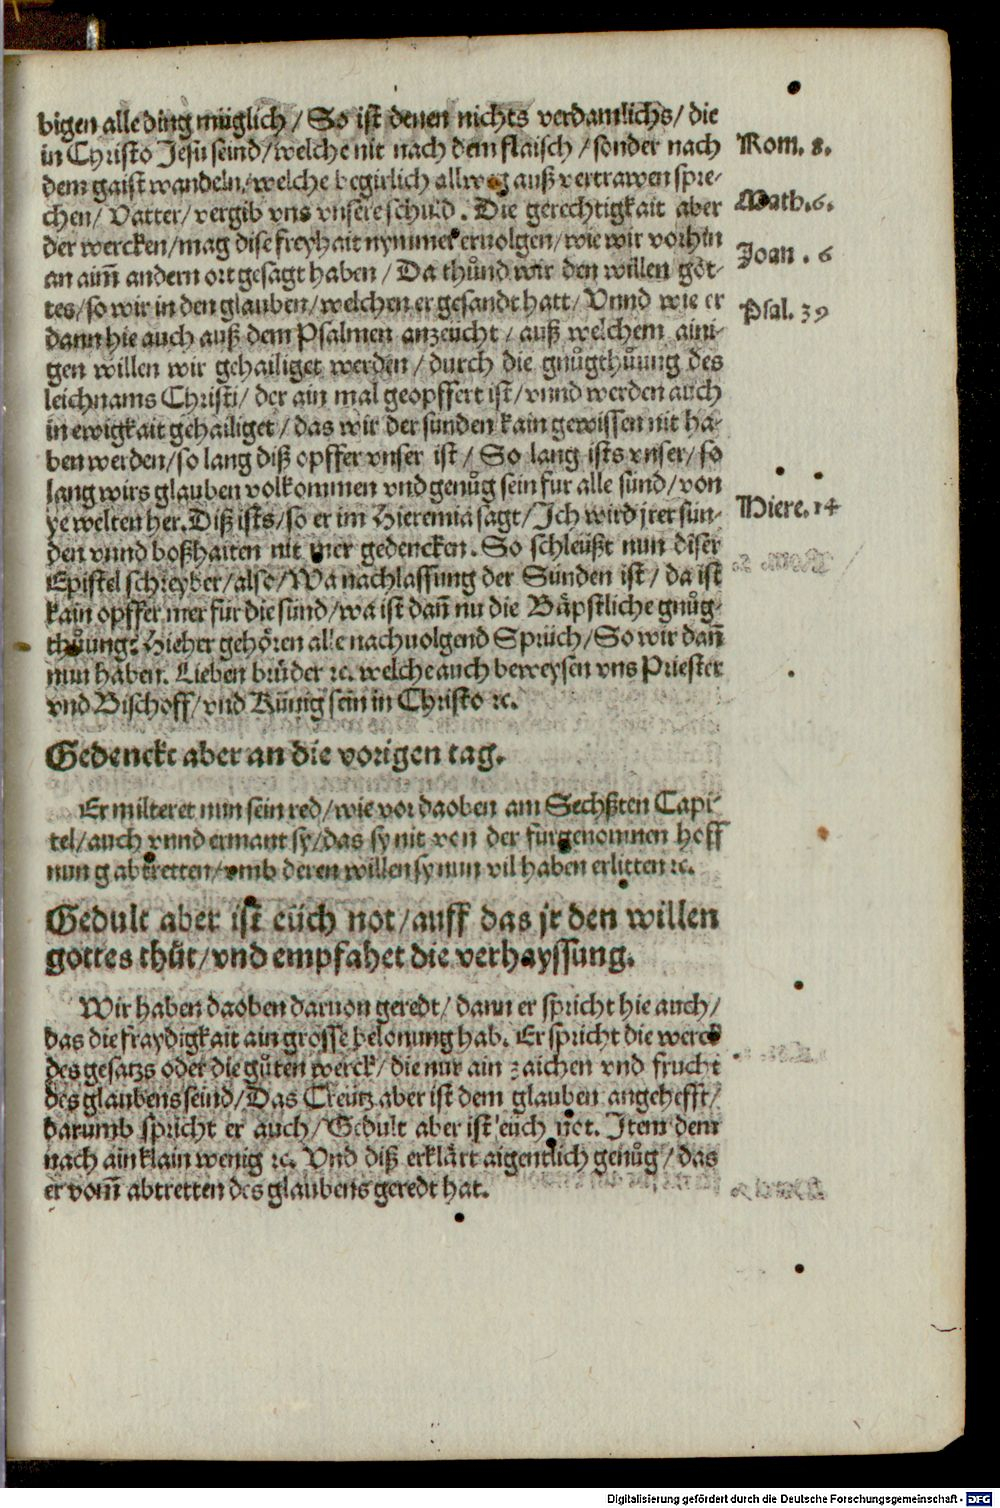 bigen alle ding müglich / So ist denen nichts verdamlichs / die
in Christo Jesu seind / welche nit nach dem flaisch / sonder nach
dem gaist wandeln / welche begirlich allweg auß vertrawen spre-
chen / Vatter / vergib vns vnsere schuld . Die gerechtigkait aber
der wercken / mag dise freyhait nymmer ernolgen / wie wir vorhin
an aim̃ andern ort gesagt haben / Da thůnd wir den willen got-
tes / so wir in den glauben / welchen er gesandt hatt / Vnnd wie er
dann hie auch auß dem Psalmen anzeücht / auß welchem aini-
gen willen wir gehailiget werden / durch die gnůgthůung des
leichnams Christi / der ain mal geopffert ist / vnnd werden auch
in ewigkait gehailiget / das wir der sünden kain gewissen nit ha-
ben werden / so lang diß opffer vnser ist / So lang ists vnser / so
lang wirs glauben volkommen vnd genůg sein für alle sünd / von
ye welten her. Diß ists / so er im Hieremia sagt / Ich wird jrer sün-
den vnnd boßhaiten nit mer gedencken. So schleüßt nun diser
Epistel schreyber / also / Wa nachlassung der Sünden ist / da ist
kain opffer mer für die sünd / wa ist dañ nu die Bäpstliche gnůg-
thůung? Hieher gehören alle nachuolgend Sprüch / So wir dañ
nun haben. Lieben brüder ꝛc. welche auch beweysen vns Priester
vnd Bischoff / vnd Künig sein in Christo ꝛc.
Rom. 8.
Math. 6.
Joan . 6
Psal. 39
Hiere. 14
Gedenckt aber an die vorigen tag.
Er milteret nun sein red / wie vor daoben am Sechßten Capi-
tel / auch vnnd ermant sy / das sy nit von der fürgenomnen hoff
nung abtretten / vmb deren willen sy nun vil haben erlitten ꝛc.
Gedult aber ist eüch not / auff das jr den willen
gottes thüt / vnd empfahet die verhayssung.
Wir haben daoben daruon geredt / dann er spricht hie auch /
das die fraydigkait ain grosse belonung hab. Er spricht die werck
des gesatzs oder die gůten werck / die nur ain zaichen vnd frucht
des glaubens seind / Das Creütz aber ist dem glauben angehefft /
darumb spricht er auch / Gedult aber ist eüch not. Item dem
nach ain klain wenig ꝛc. Vnd diß erklärt aigentlich genůg / das
er vom̃ abtretten des glaubens geredt hat.
Digitalisierung gefördert durch die Deutsche Forschungsgemeinschaft - DFG